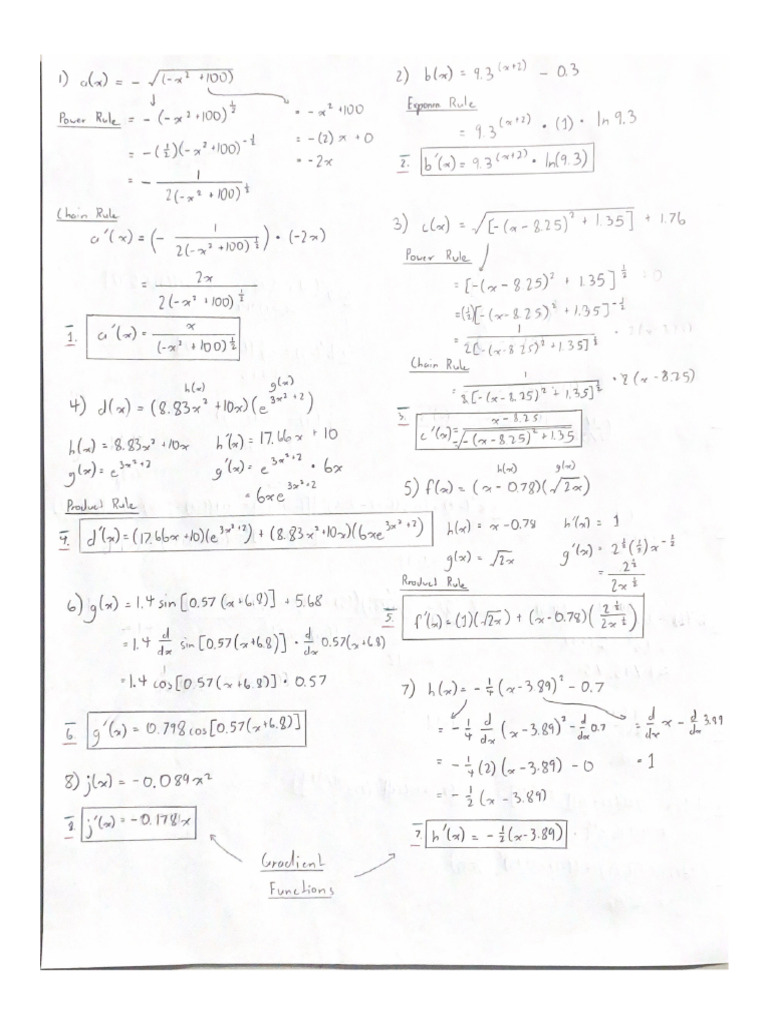 1) a(x) = - √(-x² + 100)
Power Rule = - (-x² + 100)^½
= -(½)(-x² + 100)^-½
= - 1 / 2(-x² + 100)^½
• -x² + 100
= -(2)x + 0
• -2x
Chain Rule
a'(x) = (- 1 / 2(-x² + 100)^½) • (-2x)
= 2x / 2(-x² + 100)^½
1. a'(x) = x / (-x² + 100)^½
2) b(x) = 9.3^(x+2) - 0.3
Rule
= 9.3^(x+2) • (1) • ln 9.3
2. b'(x) = 9.3^(x+2) • ln(9.3)
3) c(x) = √[-(x - 8.25)² + 1.35] + 1.76
Power Rule
= [-(x - 8.25)² + 1.35]^½
= (½)[-(x - 8.25)² + 1.35]^-½
= 1 / 2[-(x - 8.25)² + 1.35]^½
Chain Rule
= 1 / 2[-(x - 8.25)² + 1.35]^½ • 2(x - 8.25)
3. c'(x) = x - 8.25 / √-(x - 8.25)² + 1.35
h(x) g(x)
4) d(x) = (8.83x² + 10x)(e^(3x²+2))
h(x) = 8.83x² + 10x h'(x) = 17.66x + 10
g(x) = e^(3x²+2) g'(x) = e^(3x²+2) • 6x
= 6xe^(3x²+2)
Product Rule
4. d'(x) = (17.66x + 10)(e^(3x²+2)) + (8.83x² + 10x)(6xe^(3x²+2))
h(x) g(x)
5) f(x) = (x - 0.78)(√2x)
h(x) = x - 0.78 h'(x) = 1
g(x) = √2x g'(x) = 2^½(½)x^-½
= 2^½ / 2x^½
Product Rule
5. f'(x) = (1)(√2x) + (x - 0.78)(2^½ / 2x^½)
6) g(x) = 1.4 sin[0.57(x+6.8)] + 5.68
= 1.4 d/dx sin[0.57(x+6.8)] • d/dx 0.57(x+6.8)
= 1.4 cos[0.57(x+6.8)] • 0.57
6. g'(x) = 0.798 cos[0.57(x+6.8)]
7) h(x) = -¼(x - 3.89)² - 0.7
= -¼ d/dx (x - 3.89)² - d/dx 0.7 = d/dx x - d/dx 3.89
= -¼(2)(x - 3.89) - 0 • 1
= -½(x - 3.89)
7. h'(x) = -½(x - 3.89)
8) j(x) = -0.089x²
8. j'(x) = -0.178x
Gradient
Functions